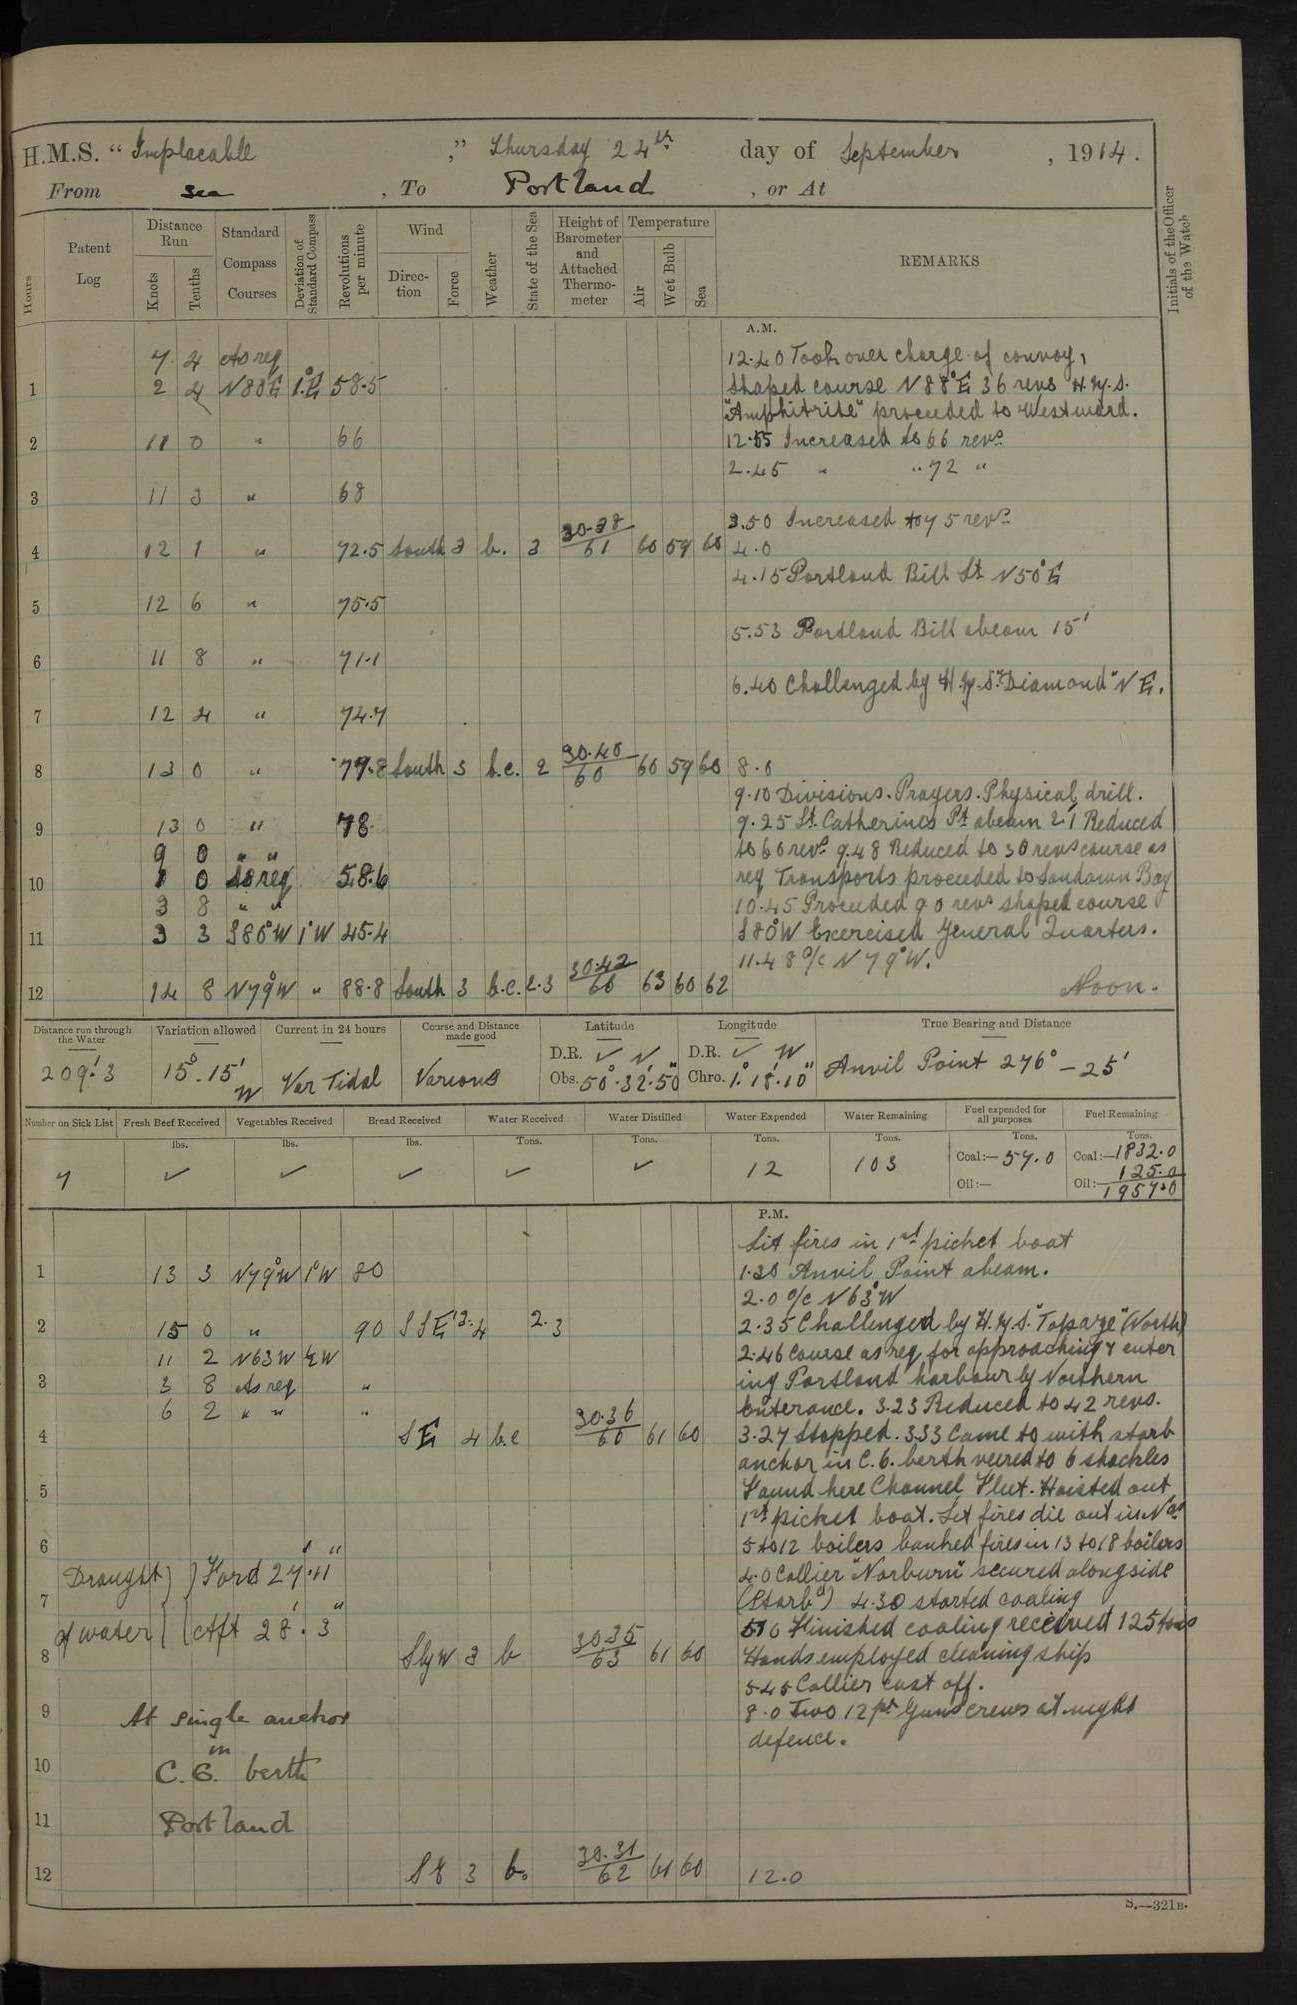 H.M.S. "Implacable," Thursday 24th day of September, 1914.
From Sea, To Portland, or At
Hours
Patent Log
Distance Run
Knots
Tenths
Standard Compass Courses
Deviation of Standard Compass
Revolutions per minute
Wind
Direction
Force
Weather
State of the Sea
Height of Barometer and Attached Thermometer
Temperature
Air
Wet Bulb
Sea
REMARKS
Initials of the Officer of the Watch
A.M.
7 4 As req
1 2 4 N88°E 1°E 58.5
2 11 0 " 66
3 11 3 " 68
4 12 1 " 72.5 South 3 b. 3 30.38/61 60 59 60
5 12 6 " 75.5
6 11 8 " 71.1
7 12 4 " 74.7
8 13 0 " 77.8 South 3 b.c. 2 30.40/60 60 59 60
9 13 0 " 78
9 0 " "
10 1 0 As req 58.6
3 8 " "
11 3 3 S80°W 1°W 45.4
12 14 8 N79°W " 88.8 South 3 b.c. 2.3 30.42/60 63 60 62
12.40 Took over charge of convoy,
shaped course N88°E 36 revs H.M.S.
"Amphitrite" proceeded to Westward.
12.55 Increased to 66 revs
2.45 " " 72 "
3.50 Increased to 75 revs
4.0
4.15 Portland Bill Lt N50°E
5.53 Portland Bill abeam 15'
6.40 Challenged by H.M.S. "Diamond" N E.
8.0
9.10 Divisions. Prayers. Physical drill.
9.25 St. Catherines Pt abeam 2.1' Reduced
to 60 revs 9.48 Reduced to 30 revs course as
req Transports proceeded to Sandown Bay
10.45 Proceeded 90 revs shaped course
S80°W Exercised General Quarters.
11.48 a/c N79°W.
Noon.
Distance run through the Water
209.'3
Variation allowed
15°.15' W
Current in 24 hours
Var Tidal
Course and Distance made good
Various
Latitude
D.R. ✓ N
Obs. 50°.32'.50"
Longitude
D.R. ✓ W
Chro. 1°.18'.10"
True Bearing and Distance
Anvil Point 276° – 25'
Number on Sick List
7
Fresh Beef Received
lbs.
✓
Vegetables Received
lbs.
✓
Bread Received
lbs.
✓
Water Received
Tons.
✓
Water Distilled
Tons.
✓
Water Expended
Tons.
12
Water Remaining
Tons.
103
Fuel expended for all purposes
Tons.
Coal:— 57.0
Oil:—
Fuel Remaining
Tons.
Coal:— 1832.0
125.0
Oil:— 1957.0
P.M.
1 13 3 N79°W 1°W 80
2 15 0 " 90 SSE 3.4 2.3
11 2 N63W ½W
3 3 8 As req "
6 2 " " "
4 SE 4 b.c 30.36/60 61 60
5
6
Draught of water } Ford 27'.11"
7
Aft 28'.3"
8 SbyW 3 b 30.35/63 61 60
9 At single anchor
in
10 C.6. berth
11 Portland
12 SE 3 b. 30.31/62 61 60
Lit fires in 1st picket boat
1.30 Anvil Point abeam.
2.0 a/c N63°W
2.35 Challenged by H.M.S. "Topaze" (North)
2.46 Course as req for approaching & enter
ing Portland harbour by Northern
Enterance. 3.23 Reduced to 42 revs.
3.27 Stopped. 3.33 Came to with starb
anchor in C.6. berth veered to 6 shackles
Found here Channel Fleet. Hoisted out
1st picket boat. Let fires die out in Nos
5 to 12 boilers banked fires in 13 to 18 boilers
4.0 Collier "Norburn" secured alongside
(Starbd) 4.30 started coaling
5.10 Finished coaling received 125 tons
Hands employed cleaning ship
5.45 Collier cast off.
8.0 Two 12 pr Guns crews at night
defence.
12.0
S.—321B.